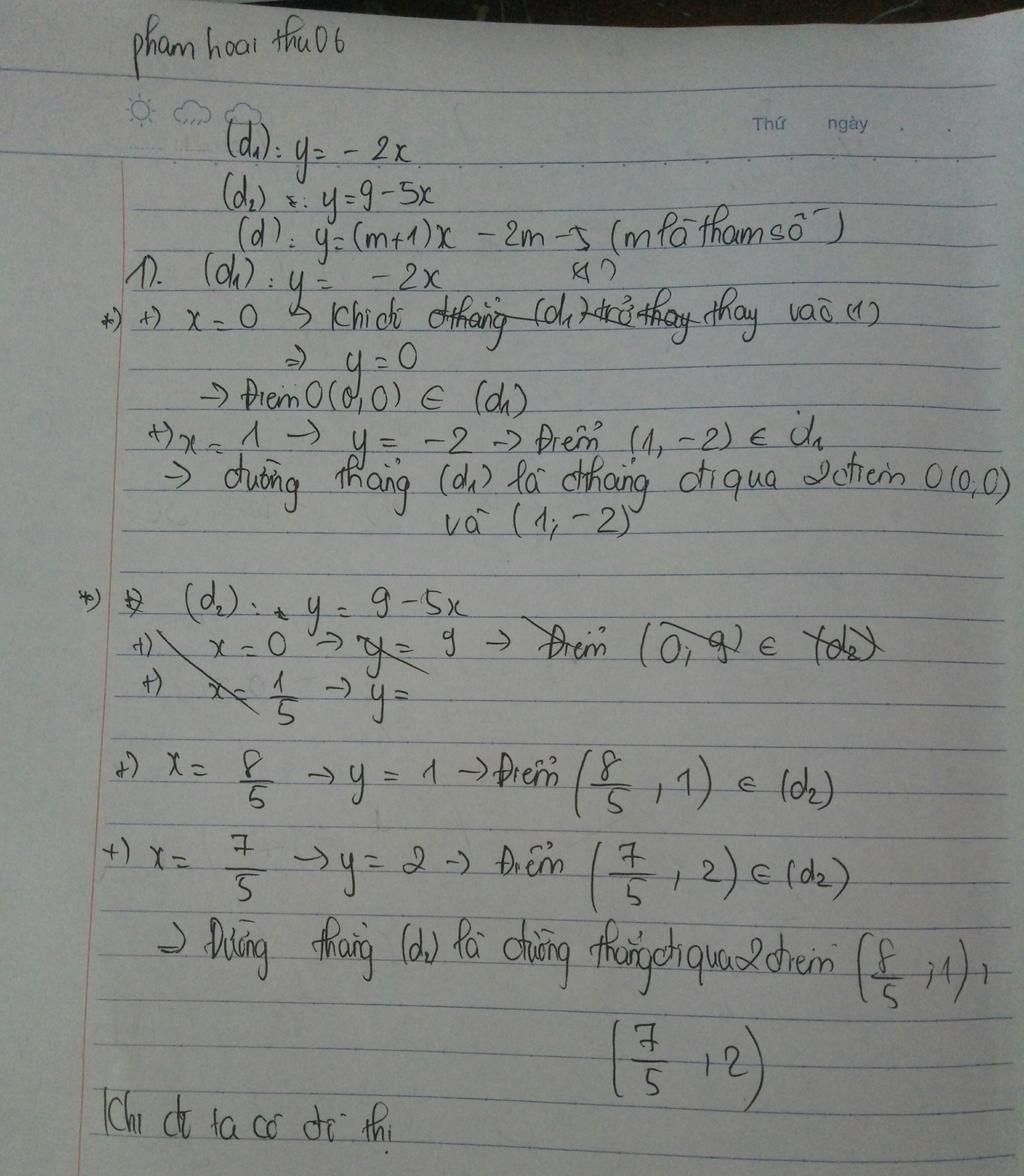 pham hoai thu06
Thứ ngày . .
(d₁): y = - 2x
(d₂) : y = 9 - 5x
(d): y = (m+1)x - 2m - 5 (m là tham số)
1). (d₁): y = - 2x (1)
*) +) x = 0 → Khi đó đthẳng (d₁) trở thay thay vào (1)
=> y = 0
→ Điểm O(0,0) ∈ (d₁)
+) x = 1 → y = -2 → Điểm (1, -2) ∈ d₁
=> đường thẳng (d₁) là đthẳng đi qua 2 điểm O(0,0)
và (1; -2)
*) (d₂): y = 9 - 5x
+) x = 0 → y = 9 → Điểm (0; 9) ∈ (d₂)
+) x = 1/5 → y =
+) x = 8/5 → y = 1 → Điểm (8/5, 1) ∈ (d₂)
+) x = 7/5 → y = 2 → Điểm (7/5, 2) ∈ (d₂)
=> Đường thẳng (d₂) là đường thẳng đi qua 2 điểm (8/5; 1),
(7/5, 2)
Khi đó ta có đồ thị